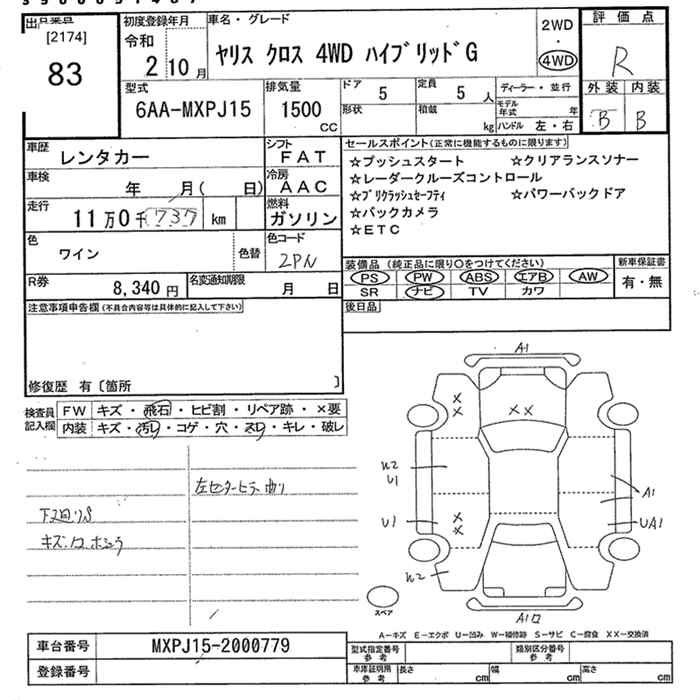 出品番号
[2174]
83
初度登録年月
令和
2 10月
車名・グレード
ヤリス クロス 4WD ハイブリッドG
2WD
・
4WD
評価点
R
外装 内装
B B
型式
6AA-MXPJ15
排気量
1500
CC
ドア 5
形状
定員 5 人
積載 kg
ディーラー・並行
モデル年式 年
ハンドル 左・右
車歴
レンタカー
車検
年 月( 日)
走行
11万0千737 km
色
ワイン
色替
シフト
FAT
冷房
AAC
燃料
ガソリン
色コード
2PN
R券
8,340円
名変通知期限
月 日
セールスポイント(正常に機能するものに限ります)
☆プッシュスタート ☆クリアランスソナー
☆レーダークルーズコントロール
☆プリクラッシュセーフティ ☆パワーバックドア
☆バックカメラ
☆ETC
装備品(純正品に限り○をつけてください)
PS PW ABS エアB AW
SR ナビ TV カワ
新車保証書
有・無
後日品
注意事項申告欄(不具合内容等は具体的に記入して下さい)
修復歴 有〔箇所 〕
検査員記入欄
FW キズ・飛石・ヒビ割・リペア跡・×要
内装 キズ・汚レ・コゲ・穴・スレ・キレ・破レ
左センターピラー曲り
下廻りS
A1
××
×
×
W2
U1
U1
×
×
W2
A1
UA1
A1
スペア
A-キズ E-エクボ U-凹み W-補修跡 S-サビ C-腐食 XX-交換済
車台番号
MXPJ15-2000779
登録番号
型式指定番号参考
類別区分番号参考
車庫証明用参考
長さ cm
幅 cm
高さ cm